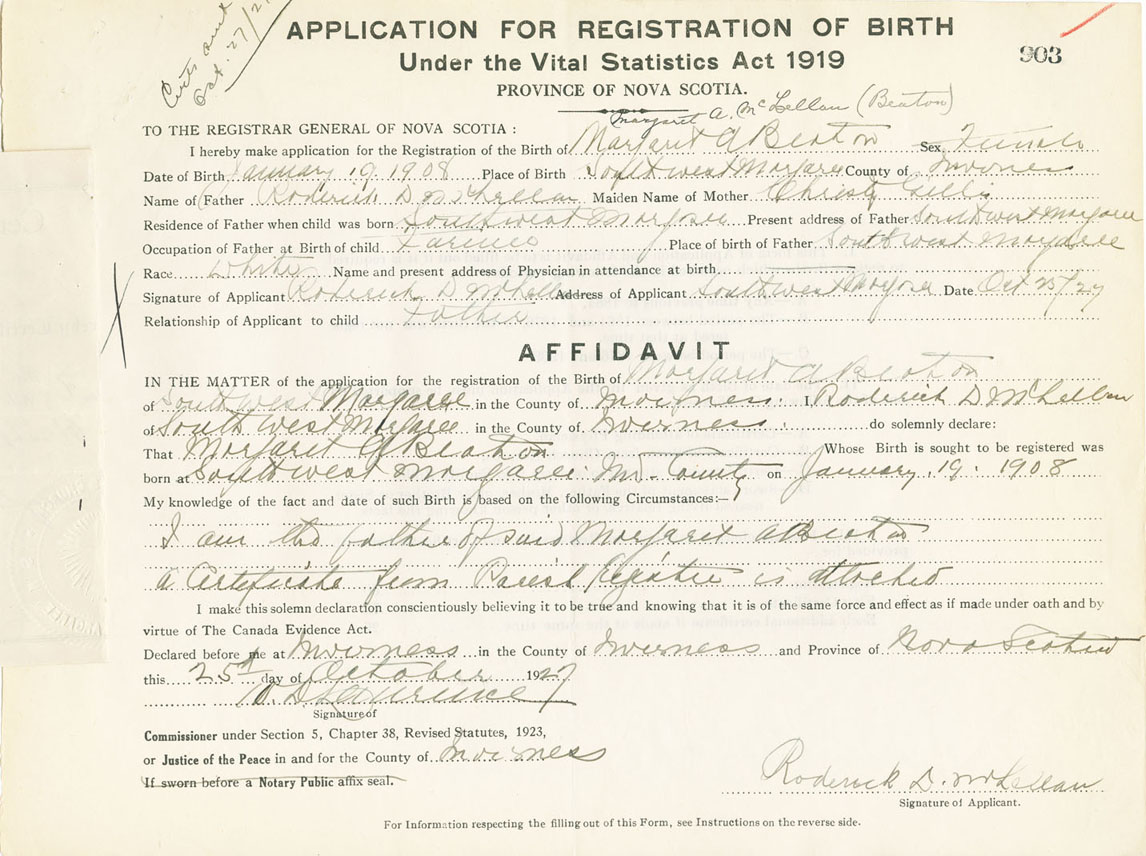 Certs and
Oct. 27/27
APPLICATION FOR REGISTRATION OF BIRTH
903
Under the Vital Statistics Act 1919
PROVINCE OF NOVA SCOTIA.
Margaret A. McLellan (Beaton)
TO THE REGISTRAR GENERAL OF NOVA SCOTIA :
I hereby make application for the Registration of the Birth of Margaret A Beaton Sex Female
Date of Birth January 19 1908 Place of Birth South west Margaree County of Inverness
Name of Father Roderick D McLellan Maiden Name of Mother Christy Gillis
Residence of Father when child was born Southwest Margaree Present address of Father South west Margaree
Occupation of Father at Birth of child Farmer Place of birth of Father South west Margaree
Race White Name and present address of Physician in attendance at birth
Signature of Applicant Roderick D McLellan Address of Applicant South west Margaree Date Oct 25/27
Relationship of Applicant to child Father
AFFIDAVIT
IN THE MATTER of the application for the registration of the Birth of Margaret A Beaton
of South west Margaree in the County of Inverness. I, Roderick D McLellan
of South West Margaree in the County of Inverness. do solemnly declare:
That Margaret A Beaton Whose Birth is sought to be registered was
born at South west Margaree Inv. County on January 19. 1908
My knowledge of the fact and date of such Birth is based on the following Circumstances:—
I am the father of said Margaret A Beaton
a Certificate from Parish Register is attached
I make this solemn declaration conscientiously believing it to be true and knowing that it is of the same force and effect as if made under oath and by
virtue of The Canada Evidence Act.
Declared before me at Inverness in the County of Inverness and Province of Nova Scotia
this 25th day of October 1927
D. Lawrence
Signature of
Commissioner under Section 5, Chapter 38, Revised Statutes, 1923,
or Justice of the Peace in and for the County of Inverness
If sworn before a Notary Public affix seal.
Roderick D. McLellan
Signature of Applicant.
For Information respecting the filling out of this Form, see Instructions on the reverse side.